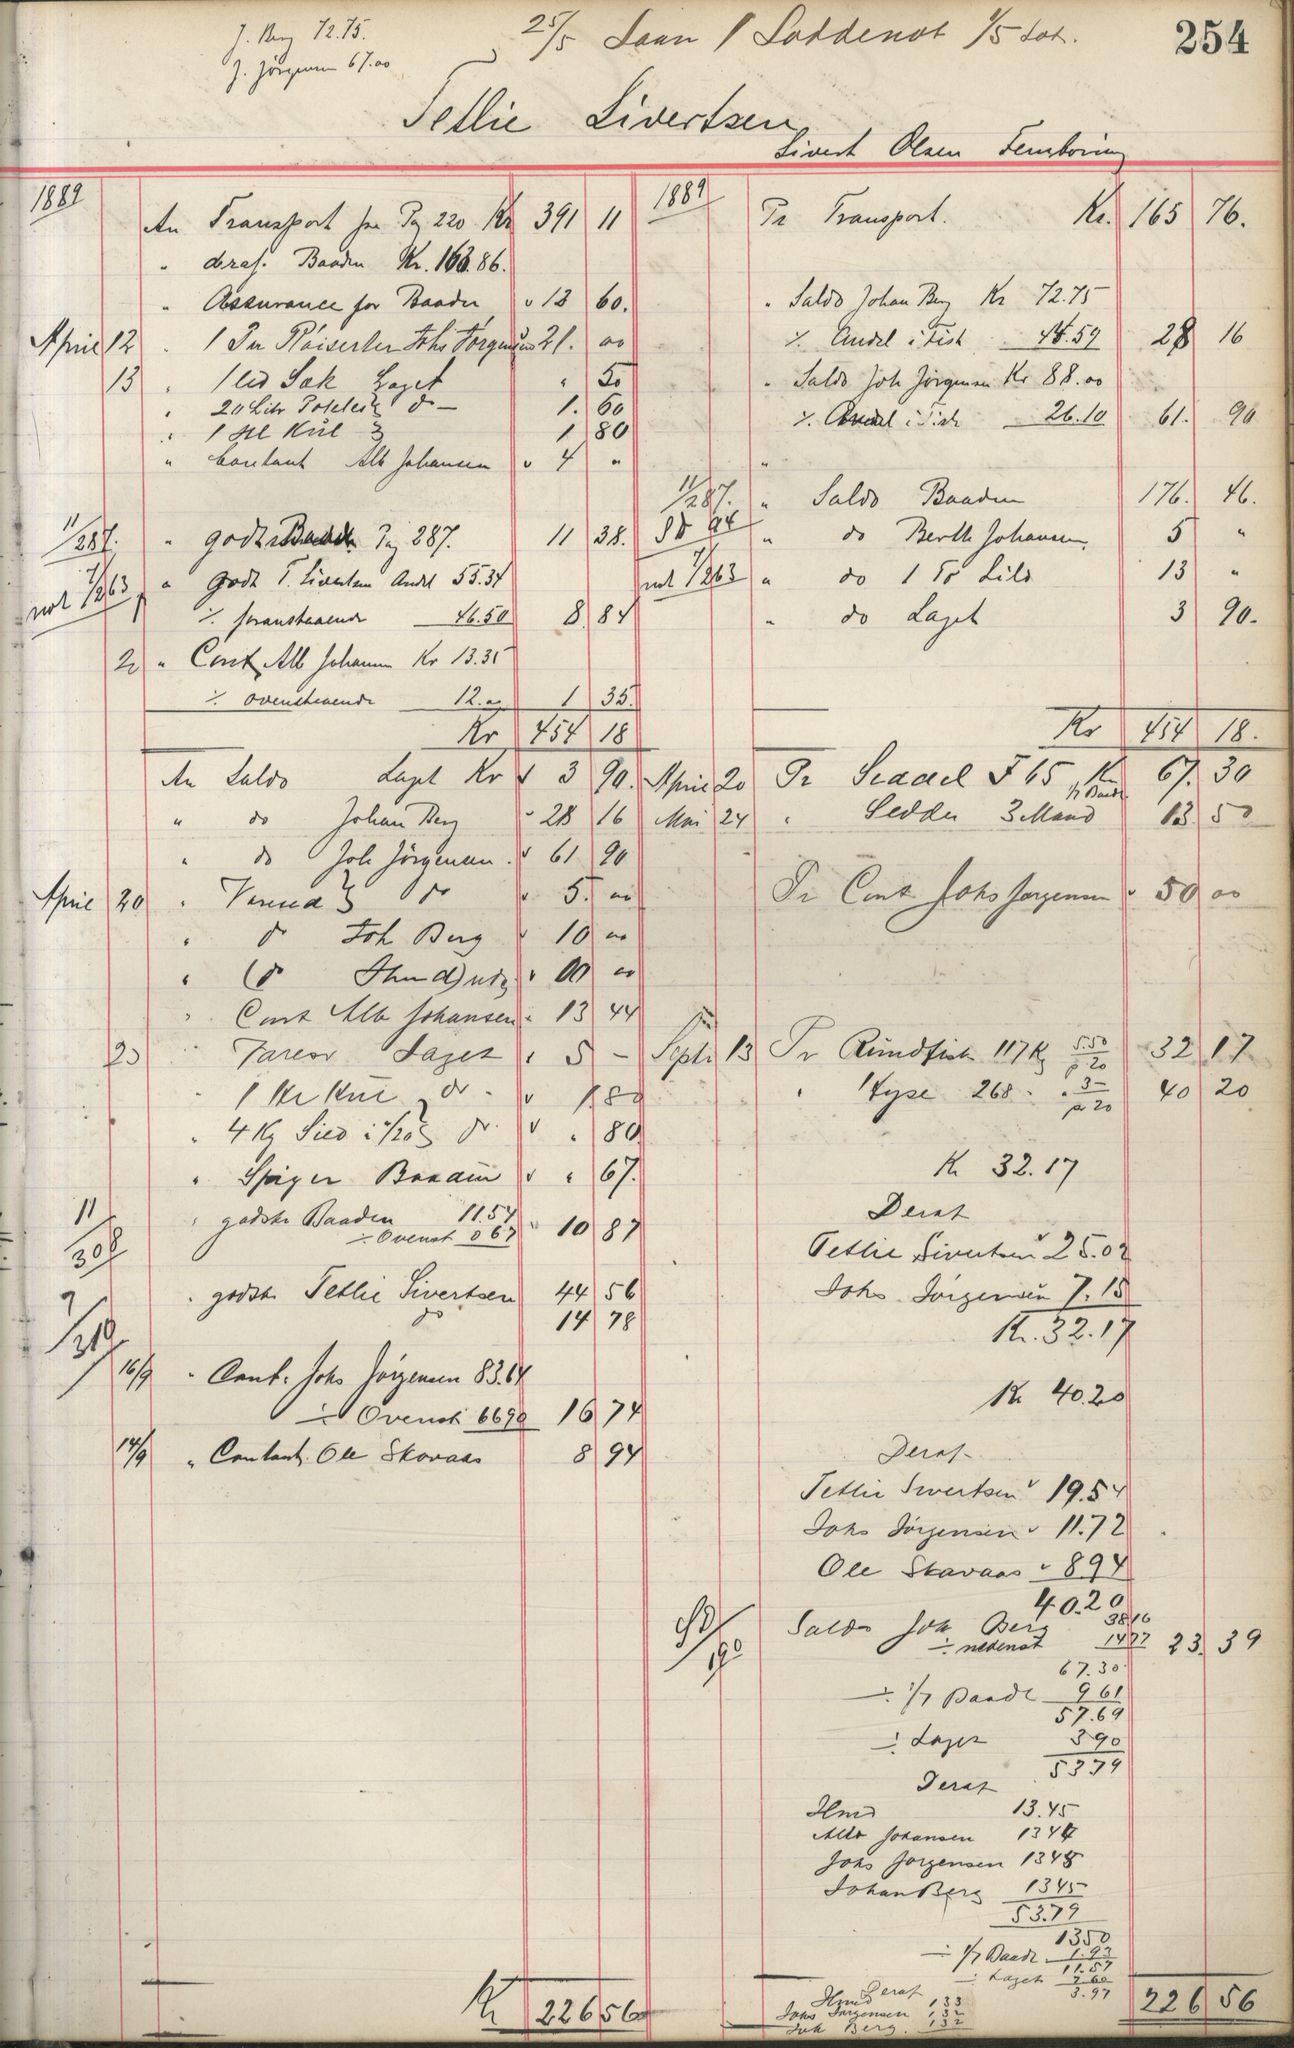 J. Berg 72.75.
J. Jörgensen 67.00
25/5 Laan 1 Loddenot 1/5 Lot.
254
Tetlie Sivertsen
Sivert Olsen
1889
An Transport fra Pag 220 Kr 391 11
" deraf. Baaden Kr. 163.86.
" Assurance for Baaden " 13 60.
April 12 " 1 Par Johs Jörgensen 21. 00
13 " 1 Sæk Laget " 50
" 20 Liter do 1. 60
" 1 Hl Kul 1 80
" Contant Alb Johansen " 4 "
11/287. " godts Baaden Pag 287. 11 38.
not 7/263 " Godt T. Sivertsen Andel 55.34
÷ foranstaaende 46.50 8. 84
20 " Cont. Alb Johansen Kr 13.35
÷ ovenstaaende 12.00 1 35.
Kr 454 18
An Saldo Laget Kr 3 90.
" do Johan Berg " 28 16
" do Joh Jörgensen " 61 90
April 20 " Varer do " 5. 00
" do Joh Berg " 10 00
" (do " 00 00
" Cont Alb Johansen " 13 44
20 " Varer Laget " 5 –
" 1 Kul do " 1.80
" 4 Kg do " " 80
" Spiger Baaden " " 67.
11/308 " godsk Baaden 11.54
÷ Ovenst 0 67 " 10 87
7/319 " godsk. Tetlie Sivertsen 44 56
do 14 78
16/9 " Cont. Johs Jörgensen 83.64
÷ Ovenst 66 90 16 74
14/9 " Contant. Ole Skavaas 8 94
Kr 226 56
1889
Pr Transport. Kr. 165 76.
" Saldo Johan Berg Kr 72.75
÷ Andel i Fisk 44.59 28 16
" Saldo Joh Jörgensen Kr 88.00
÷ Andel i Fisk 26.10 61. 90
"
11/287. " Saldo Baaden 176. 46.
SD 94 " do Berth Johansen, 5 "
not 7/263 " do 1 Td Sild 13 "
" do Laget 3 90.
Kr 454 18.
April 20 Pr Seddel F 65 Kr 67. 30
1/7 Baade
Mai 24 " Sedder 3 Mand 13. 50
Pr Cont Johs Jorgensen " 50 00
Septr 13 Pr Rundfisk 117 Kg 5.50 p 20 32 17
" Hyse 268 " 3– p 20 40 20
Kr 32.17
Deraf
Tetlie Sivertsen 25.02
Johs Jörgensen 7.15
Kr. 32.17
Kr 40.20
Deraf
Tetlie Sivertsen 19.54
Johs Jörgensen 11.72
Ole Skavaas 8.94
40.20
SD/190 Saldo Joh Berg 38 16
÷ nedenst 14 77 23. 39
67.30
÷ 1/7 Baade 9 61
57.69
÷ Laget 3 90
53 79
Deraf
Hmd 13.45
Alb Johansen 13 44
Johs Jorgensen 13 45
Johan Berg 13 45
53.79
13 50
÷ 1/7 Baade 1.93
11.57
÷ Laget 7 60
3.97
Deraf
Hmd 1 33
Johs Jörgensen 1 32
Joh Berg. 1 32
226 56